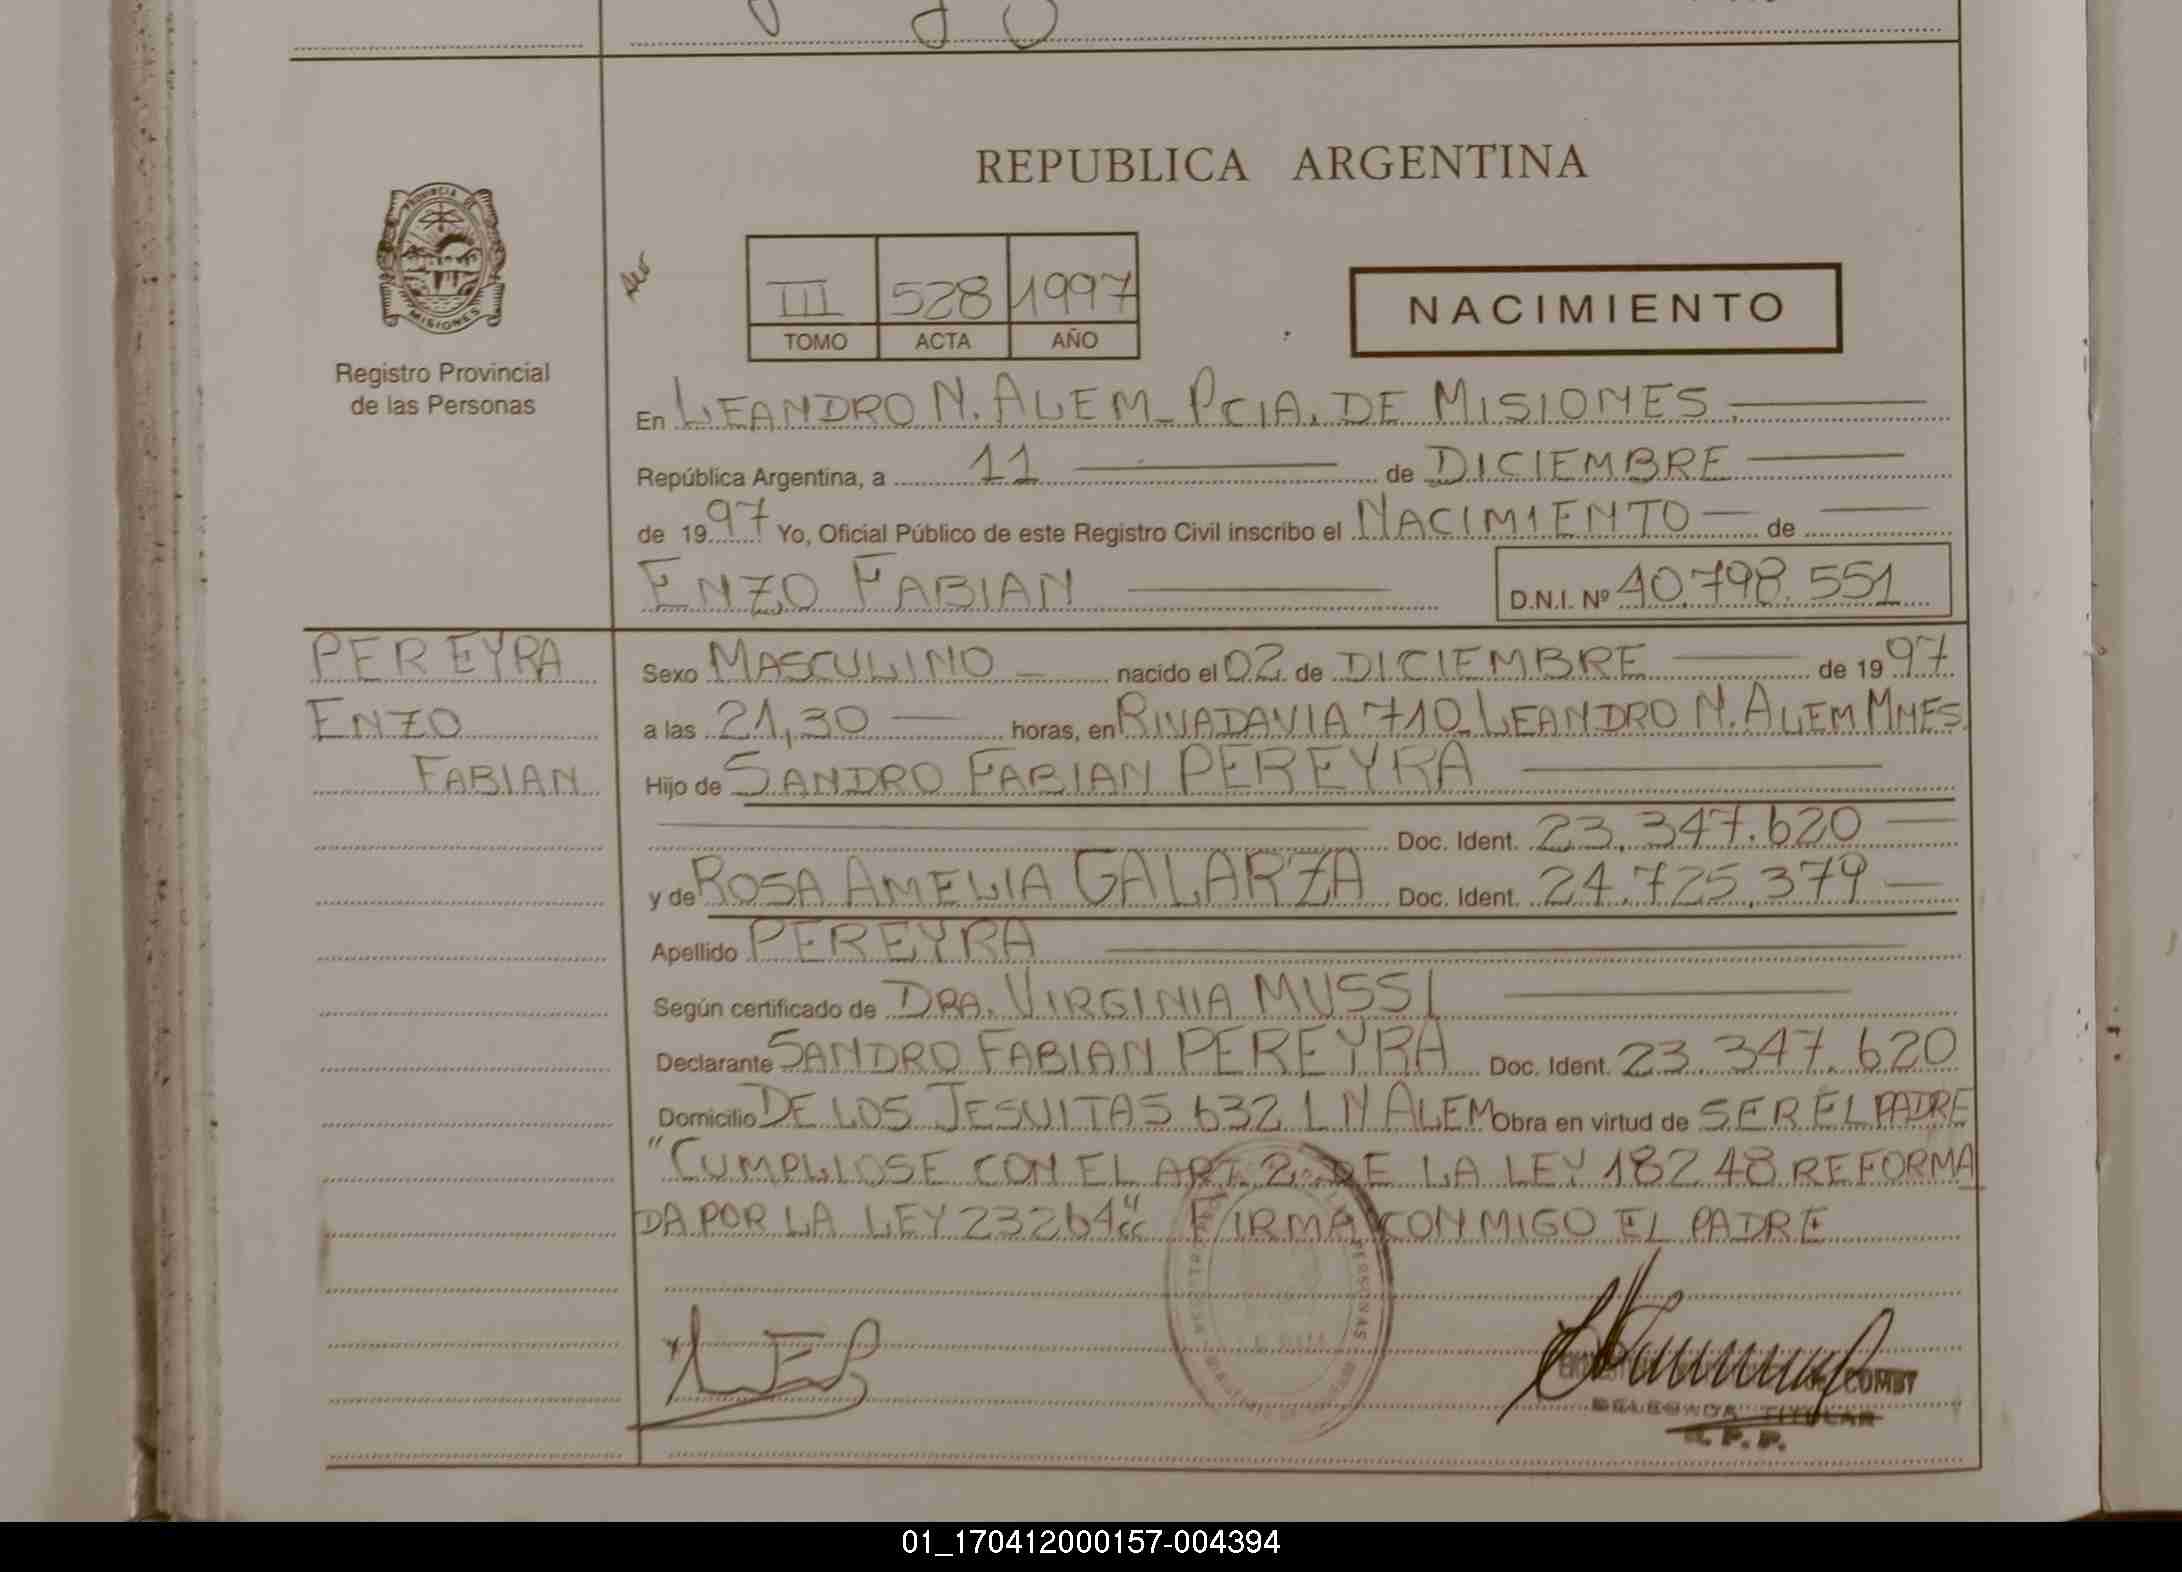 REPUBLICA ARGENTINA
PROVINCIA DE
MISIONES
Registro Provincial
de las Personas
III 528 1997
TOMO ACTA AÑO
NACIMIENTO
En LEANDRO N. ALEM - PCIA. DE MISIONES.
República Argentina, a 11 de DICIEMBRE
de 1997 Yo, Oficial Público de este Registro Civil inscribo el NACIMIENTO de
ENZO FABIAN D.N.I. Nº 40.798.551
PEREYRA
ENZO
FABIAN
Sexo MASCULINO nacido el 02 de DICIEMBRE de 1997
a las 21,30 horas, en RIVADAVIA 710 - LEANDRO N. ALEM MNES
Hijo de SANDRO FABIAN PEREYRA
Doc. Ident. 23.347.620
y de ROSA AMELIA GALARZA Doc. Ident. 24.725.379
Apellido PEREYRA
Según certificado de DRA. VIRGINIA MUSSI
Declarante SANDRO FABIAN PEREYRA Doc. Ident. 23.347.620
Domicilio DE LOS JESUITAS 632 L N ALEM Obra en virtud de SER EL PADRE
"CUMPLIOSE CON EL ART. 2 DE LA LEY 18248 REFORMA
DA POR LA LEY 23264" FIRMA CONMIGO EL PADRE
PERSONAS
DELEGADA TITULAR
R. P. P.
01_170412000157-004394